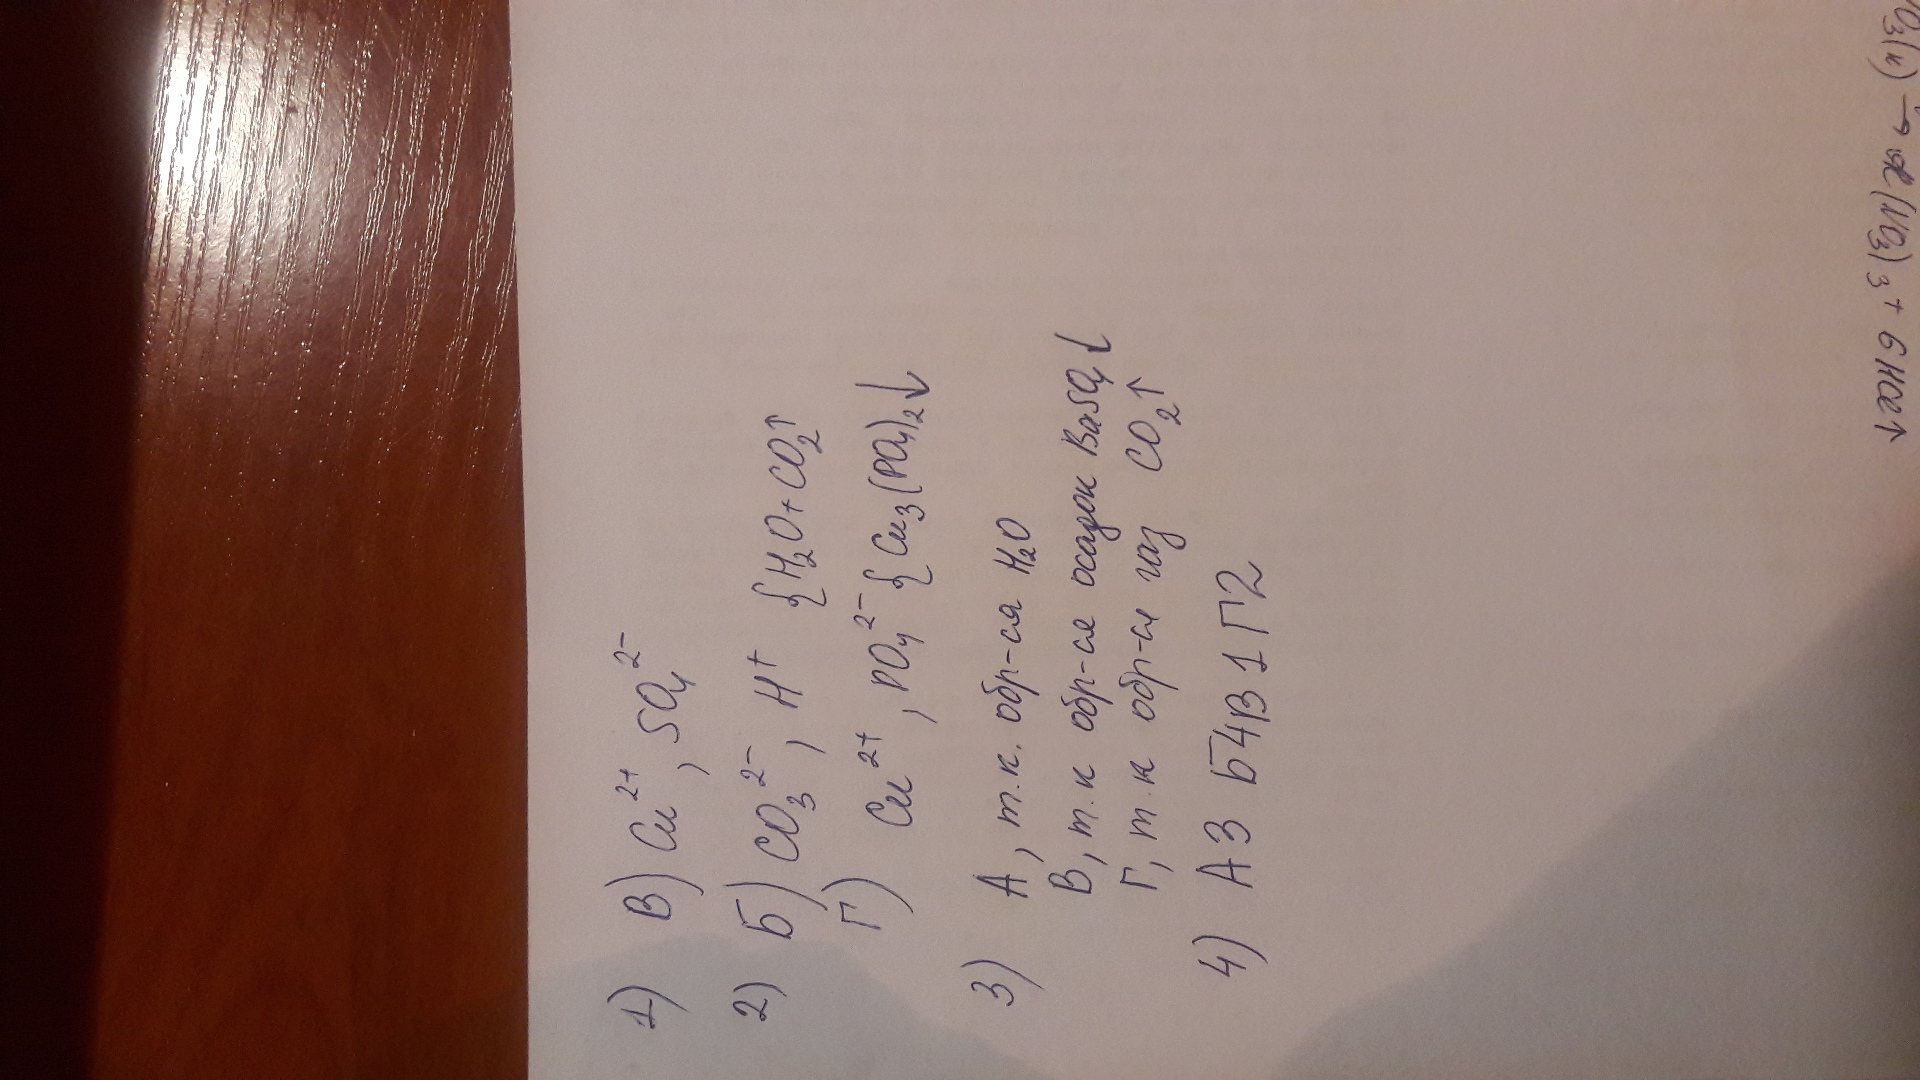 1) В) Cu²⁺, SO₄²⁻
2) Б) CO₃²⁻, H⁺ {H₂O + CO₂↑
Г) Cu²⁺, PO₄²⁻ {Cu₃(PO₄)₂↓
3) А, т.к. обр-ся H₂O
В, т.к обр-ся осадок BaSO₄↓
Г, т.к обр-ся газ CO₂↑
4) А3 Б4В1Г2
O₃(к) → Al(NO₃)₃ + 6HCl↑